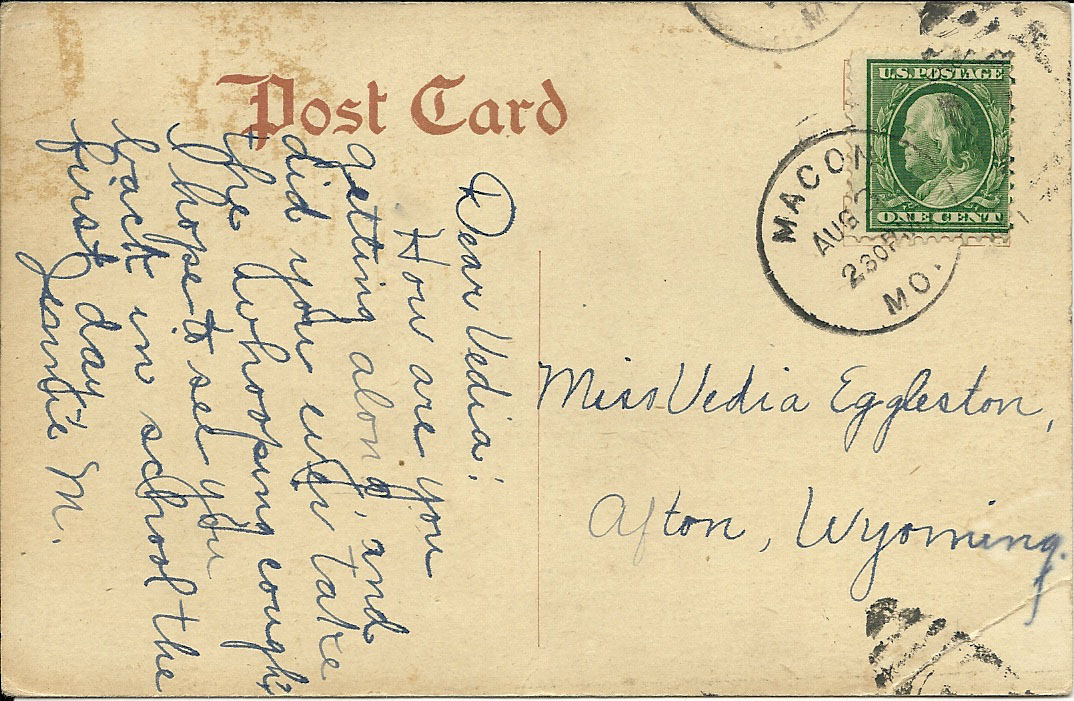 Post Card
U.S. POSTAGE
ONE CENT
MACON
AUG
230P
MO.
Dear Vedia:
How are you
getting along, and
did you ever take
the whooping cough.
I hope to see you
back in school the
first day.
Jennie M.
Miss Vedia Eggleston,
Afton, Wyoming.